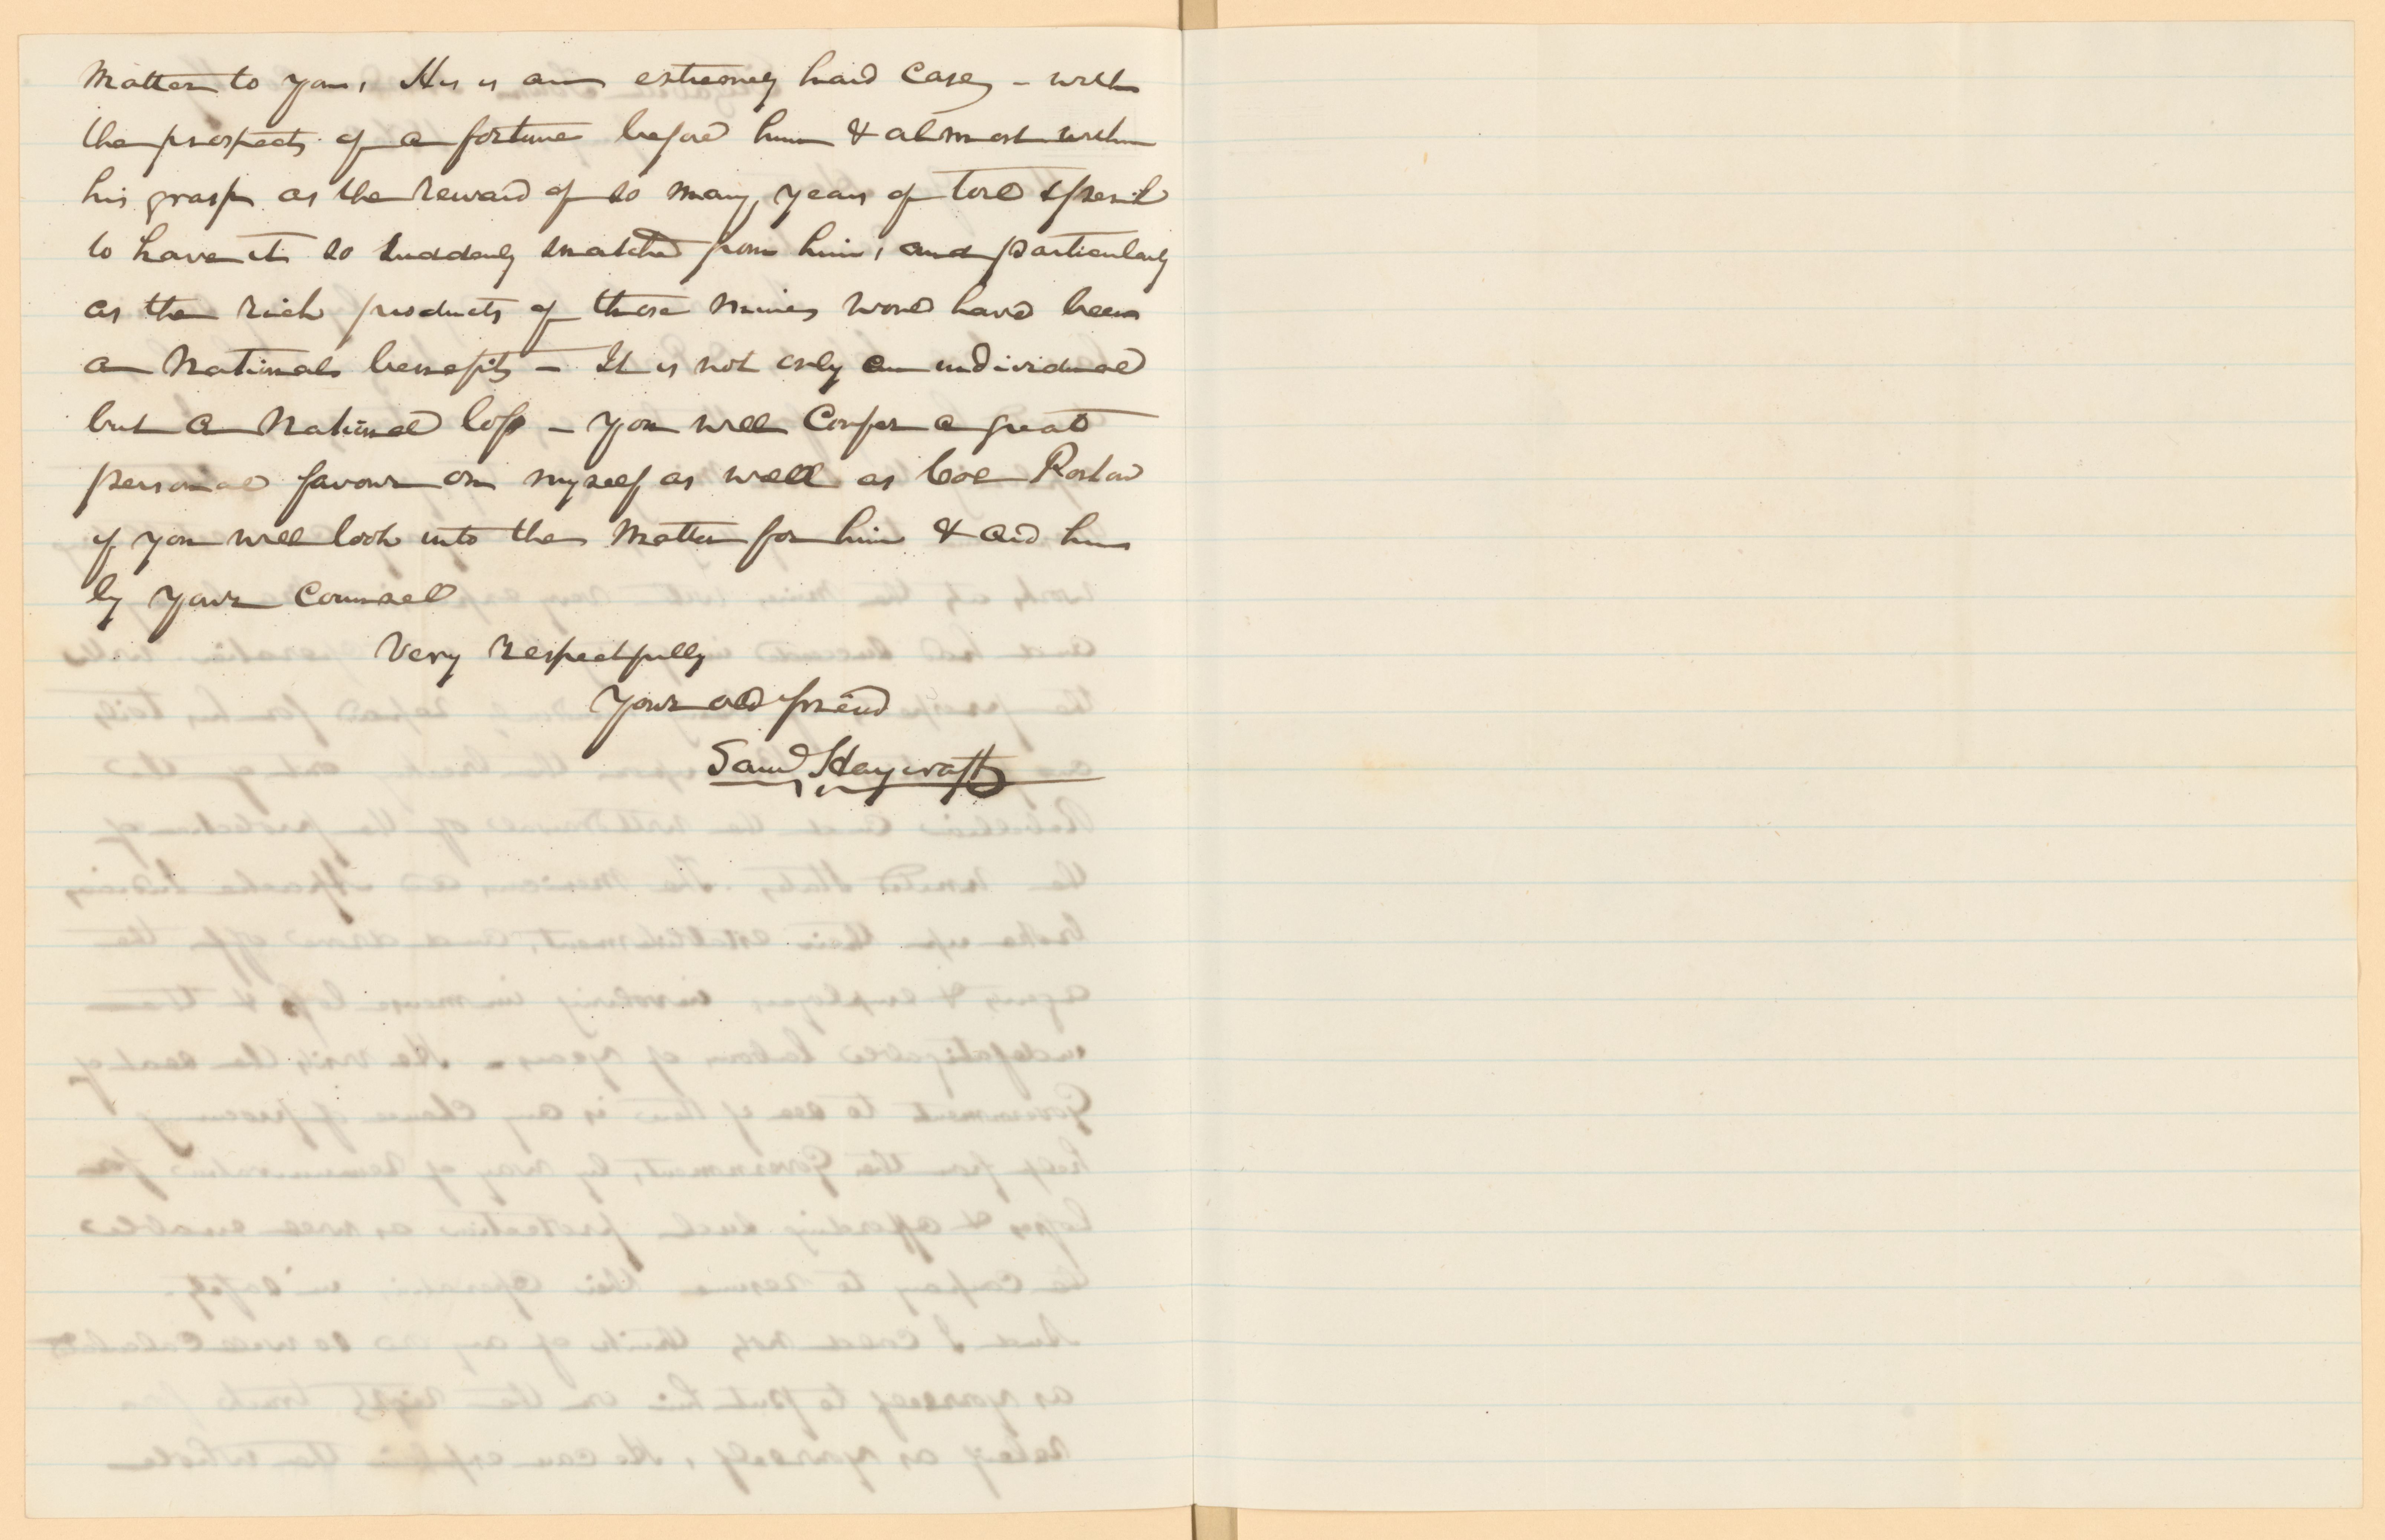 Matter to you, His is an extremely hard case, - with
the prospects of a fortune before him & almost within
his grasp as the reward of so many, years of toil & peril
to have it so suddenly snatched from him, and particularly
as the rich products of those mines would have been
a National benefit, - It is not only an individual
but a National loss - you will Confer a great
personal favour on myself as well as Col
if you will look into the Matter for him & aid him
by your Counsel
Very respectfully
Your old friend
Saml Haycraft